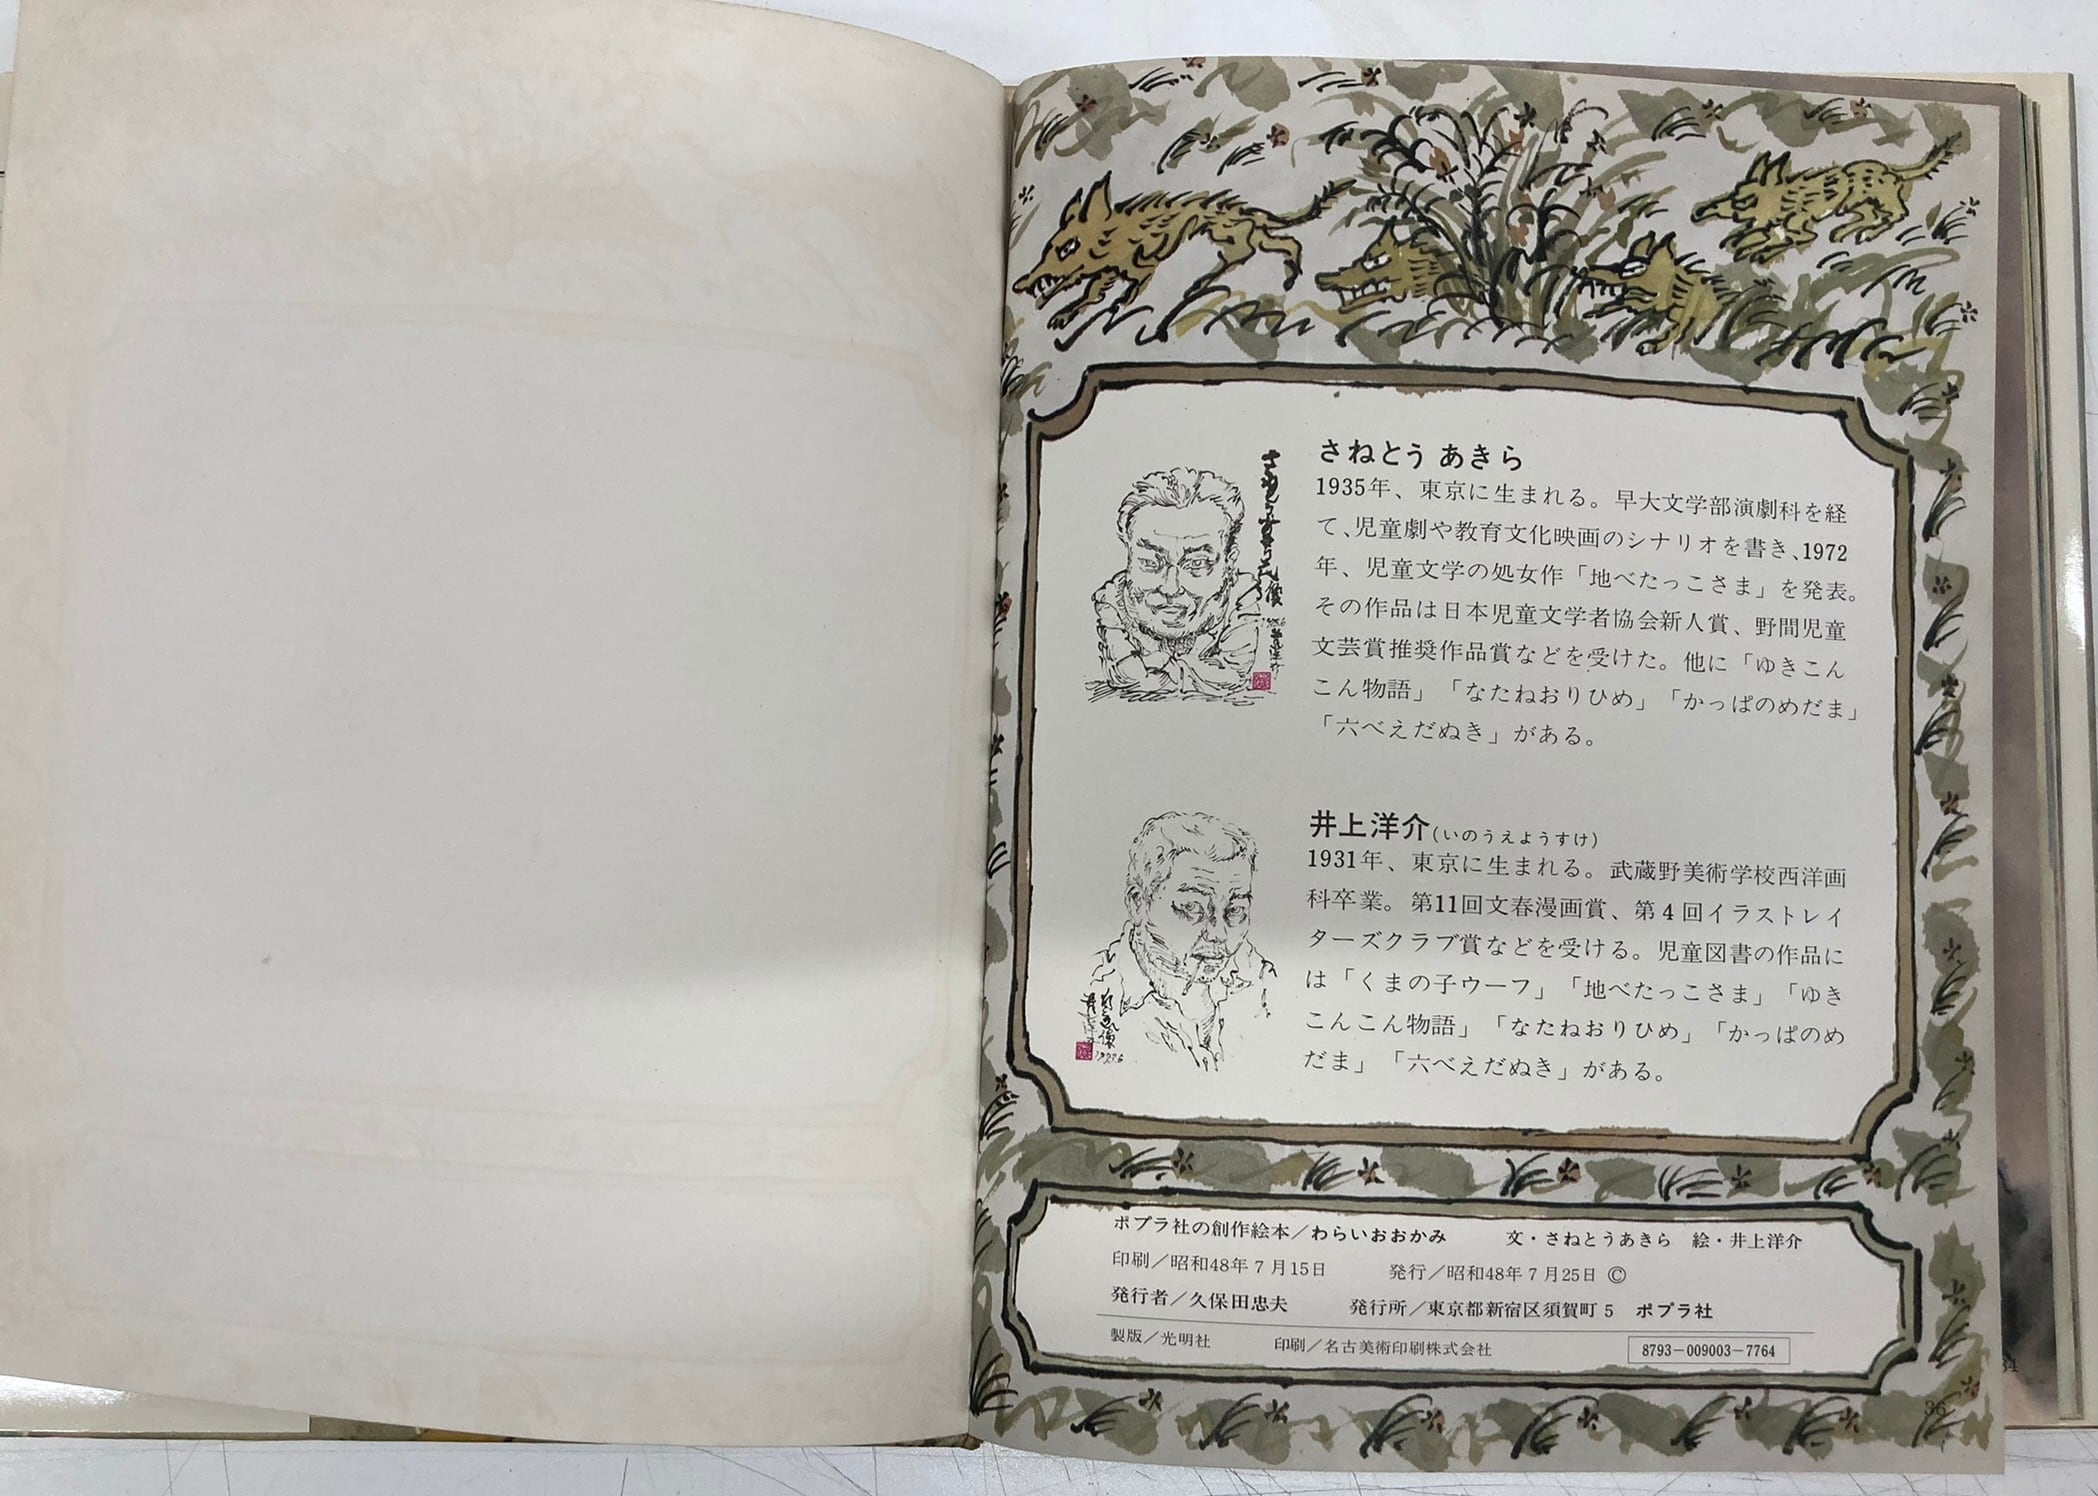 さねとう あきら
1935年、東京に生まれる。早大文学部演劇科を経
て、児童劇や教育文化映画のシナリオを書き、1972
年、児童文学の処女作「地べたっこさま」を発表。
その作品は日本児童文学者協会新人賞、野間児童
文芸賞推奨作品賞などを受けた。他に「ゆきこん
こん物語」「なたねおりひめ」「かっぱのめだま」
「六べえだぬき」がある。
井上洋介(いのうえようすけ)
1931年、東京に生まれる。武蔵野美術学校西洋画
科卒業。第11回文春漫画賞、第4回イラストレイ
ターズクラブ賞などを受ける。児童図書の作品に
は「くまの子ウーフ」「地べたっこさま」「ゆき
こんこん物語」「なたねおりひめ」「かっぱのめ
だま」「六べえだぬき」がある。
ポプラ社の創作絵本/わらいおおかみ 文・さねとうあきら 絵・井上洋介
印刷/昭和48年7月15日 発行/昭和48年7月25日 ©
発行者/久保田忠夫 発行所/東京都新宿区須賀町5 ポプラ社
製版/光明社 印刷/名古美術印刷株式会社 8793-009003-7764
34
36